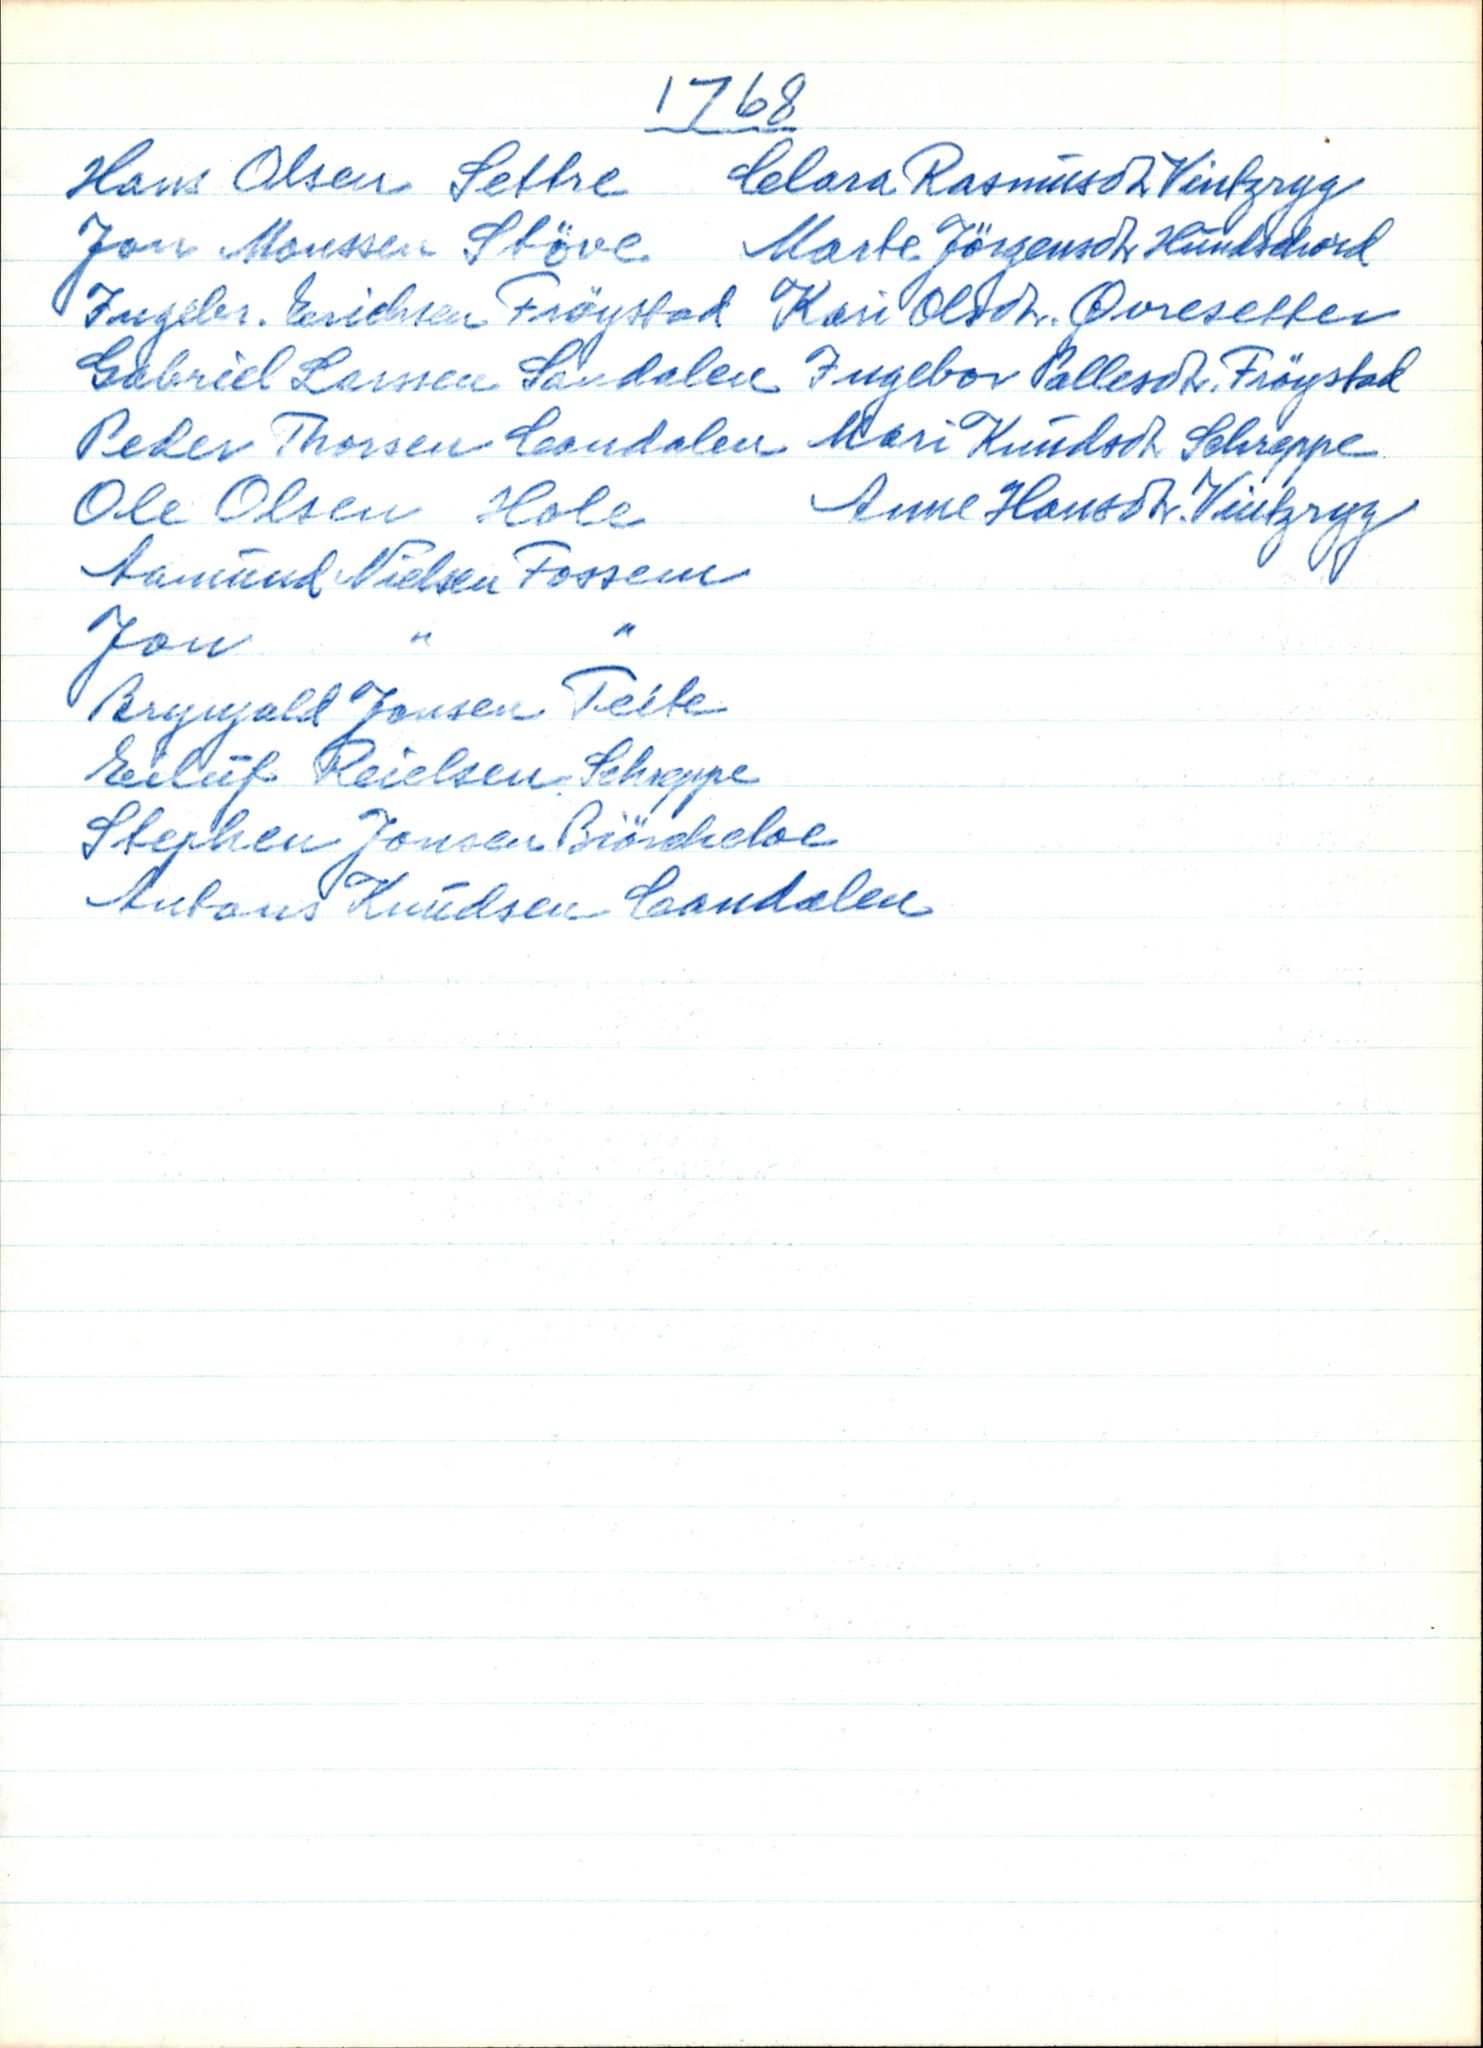 1768
Hans Olsen Settre Clara Rasmusdt. Vintzryg
Jon Monssen Stöve Marte Jörgensdt. Hundschord
Ingebr. Erichsen Fröystad Kari Olsdt. Øvresetter
Gabriel Larssen Sandalen Ingebor Pallesdt. Fröystad
Peder Thorsen Candalen Mari Knudsdt Schreppe
Ole Olsen Hole Anne Hansdt. Vintzryg
Aamund Nielsen Fossem
Jon " "
Brynjald Jonsen Teite
Eiluf Reielsen Schreppe
Stephen Jonsen Biörcheloe
Antons Knudsen Candalen